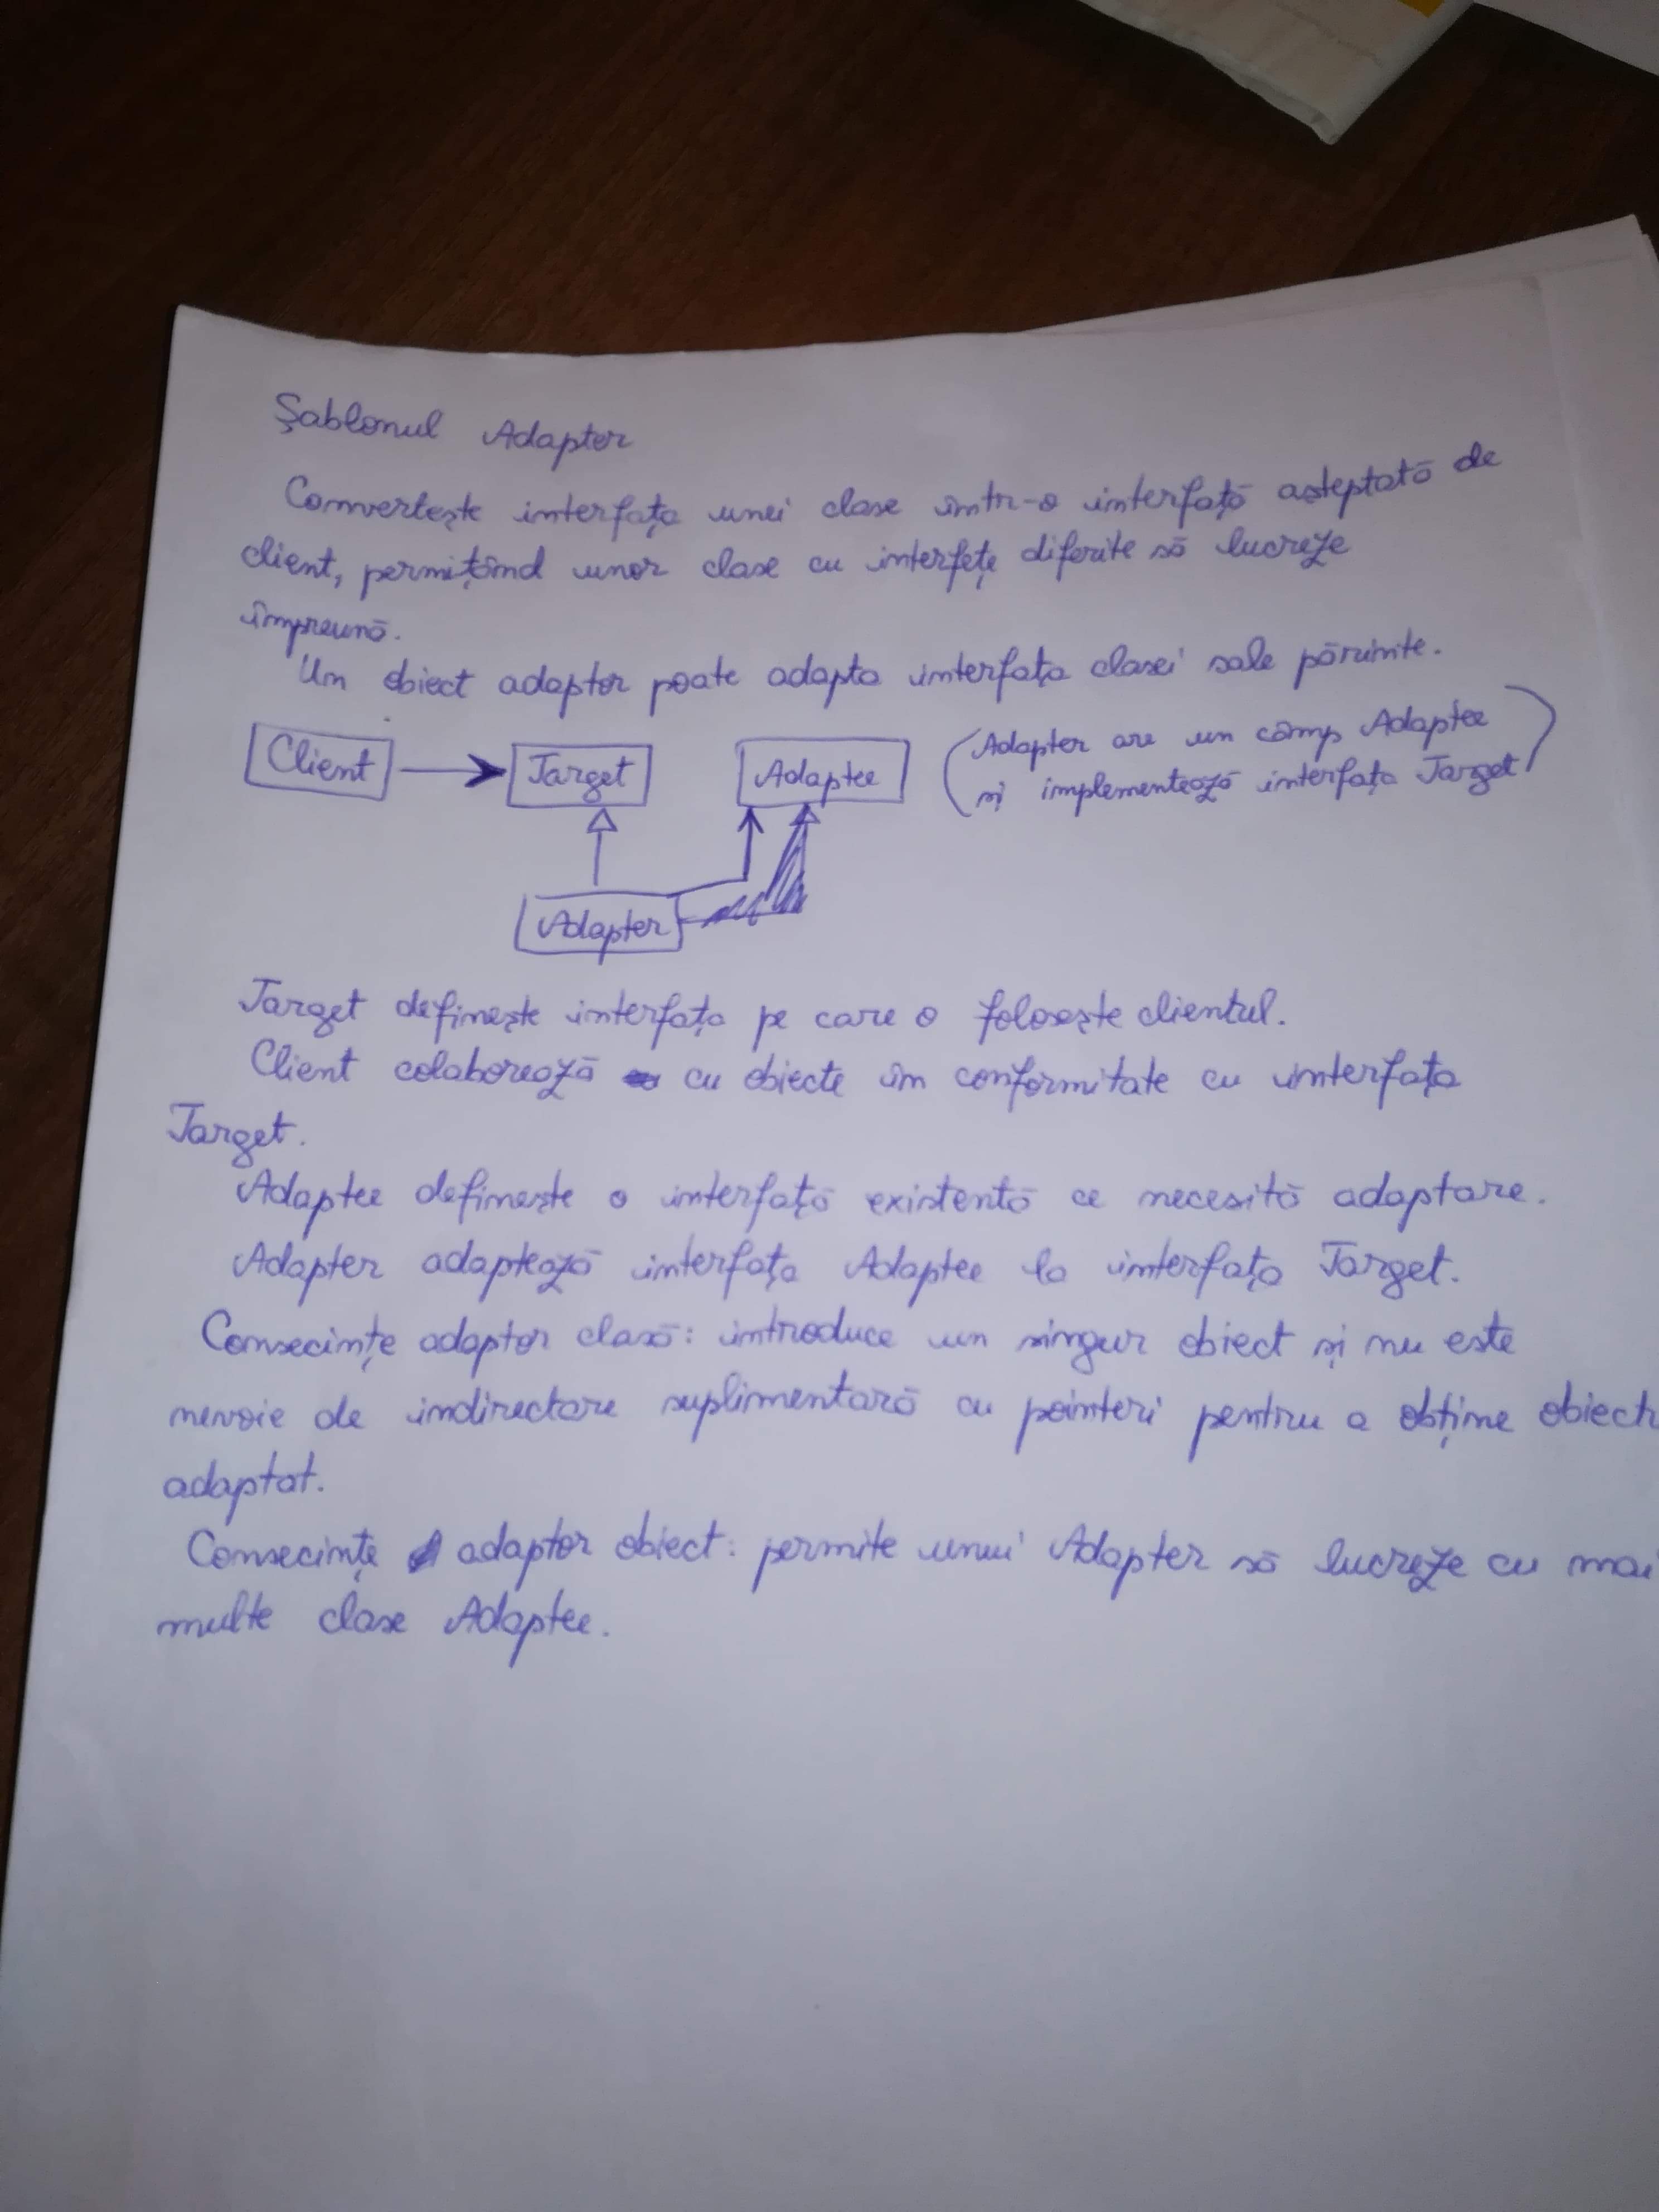 Șablonul Adapter
Convertește interfața unei clase într-o interfață așteptată de
client, permițând unor clase cu interfețe diferite să lucreze
împreună.
Un obiect adaptor poate adapta interfața clasei sale părinte.
Client
Target
Adaptee
(Adapter are un câmp Adaptee
și implementează interfața Target)
Adapter
Target definește interfața pe care o folosește clientul.
Client colaborează cu obiecte în conformitate cu interfața
Target.
Adaptee definește o interfață existentă ce necesită adaptare.
Adapter adaptează interfața Adaptee la interfața Target.
Consecințe adaptor clasă: introduce un singur obiect și nu este
nevoie de indirectare suplimentară cu pointeri pentru a obține
adaptat.
Consecințe adaptor obiect: permite unui Adapter să lucreze cu mai
multe clase Adaptee.